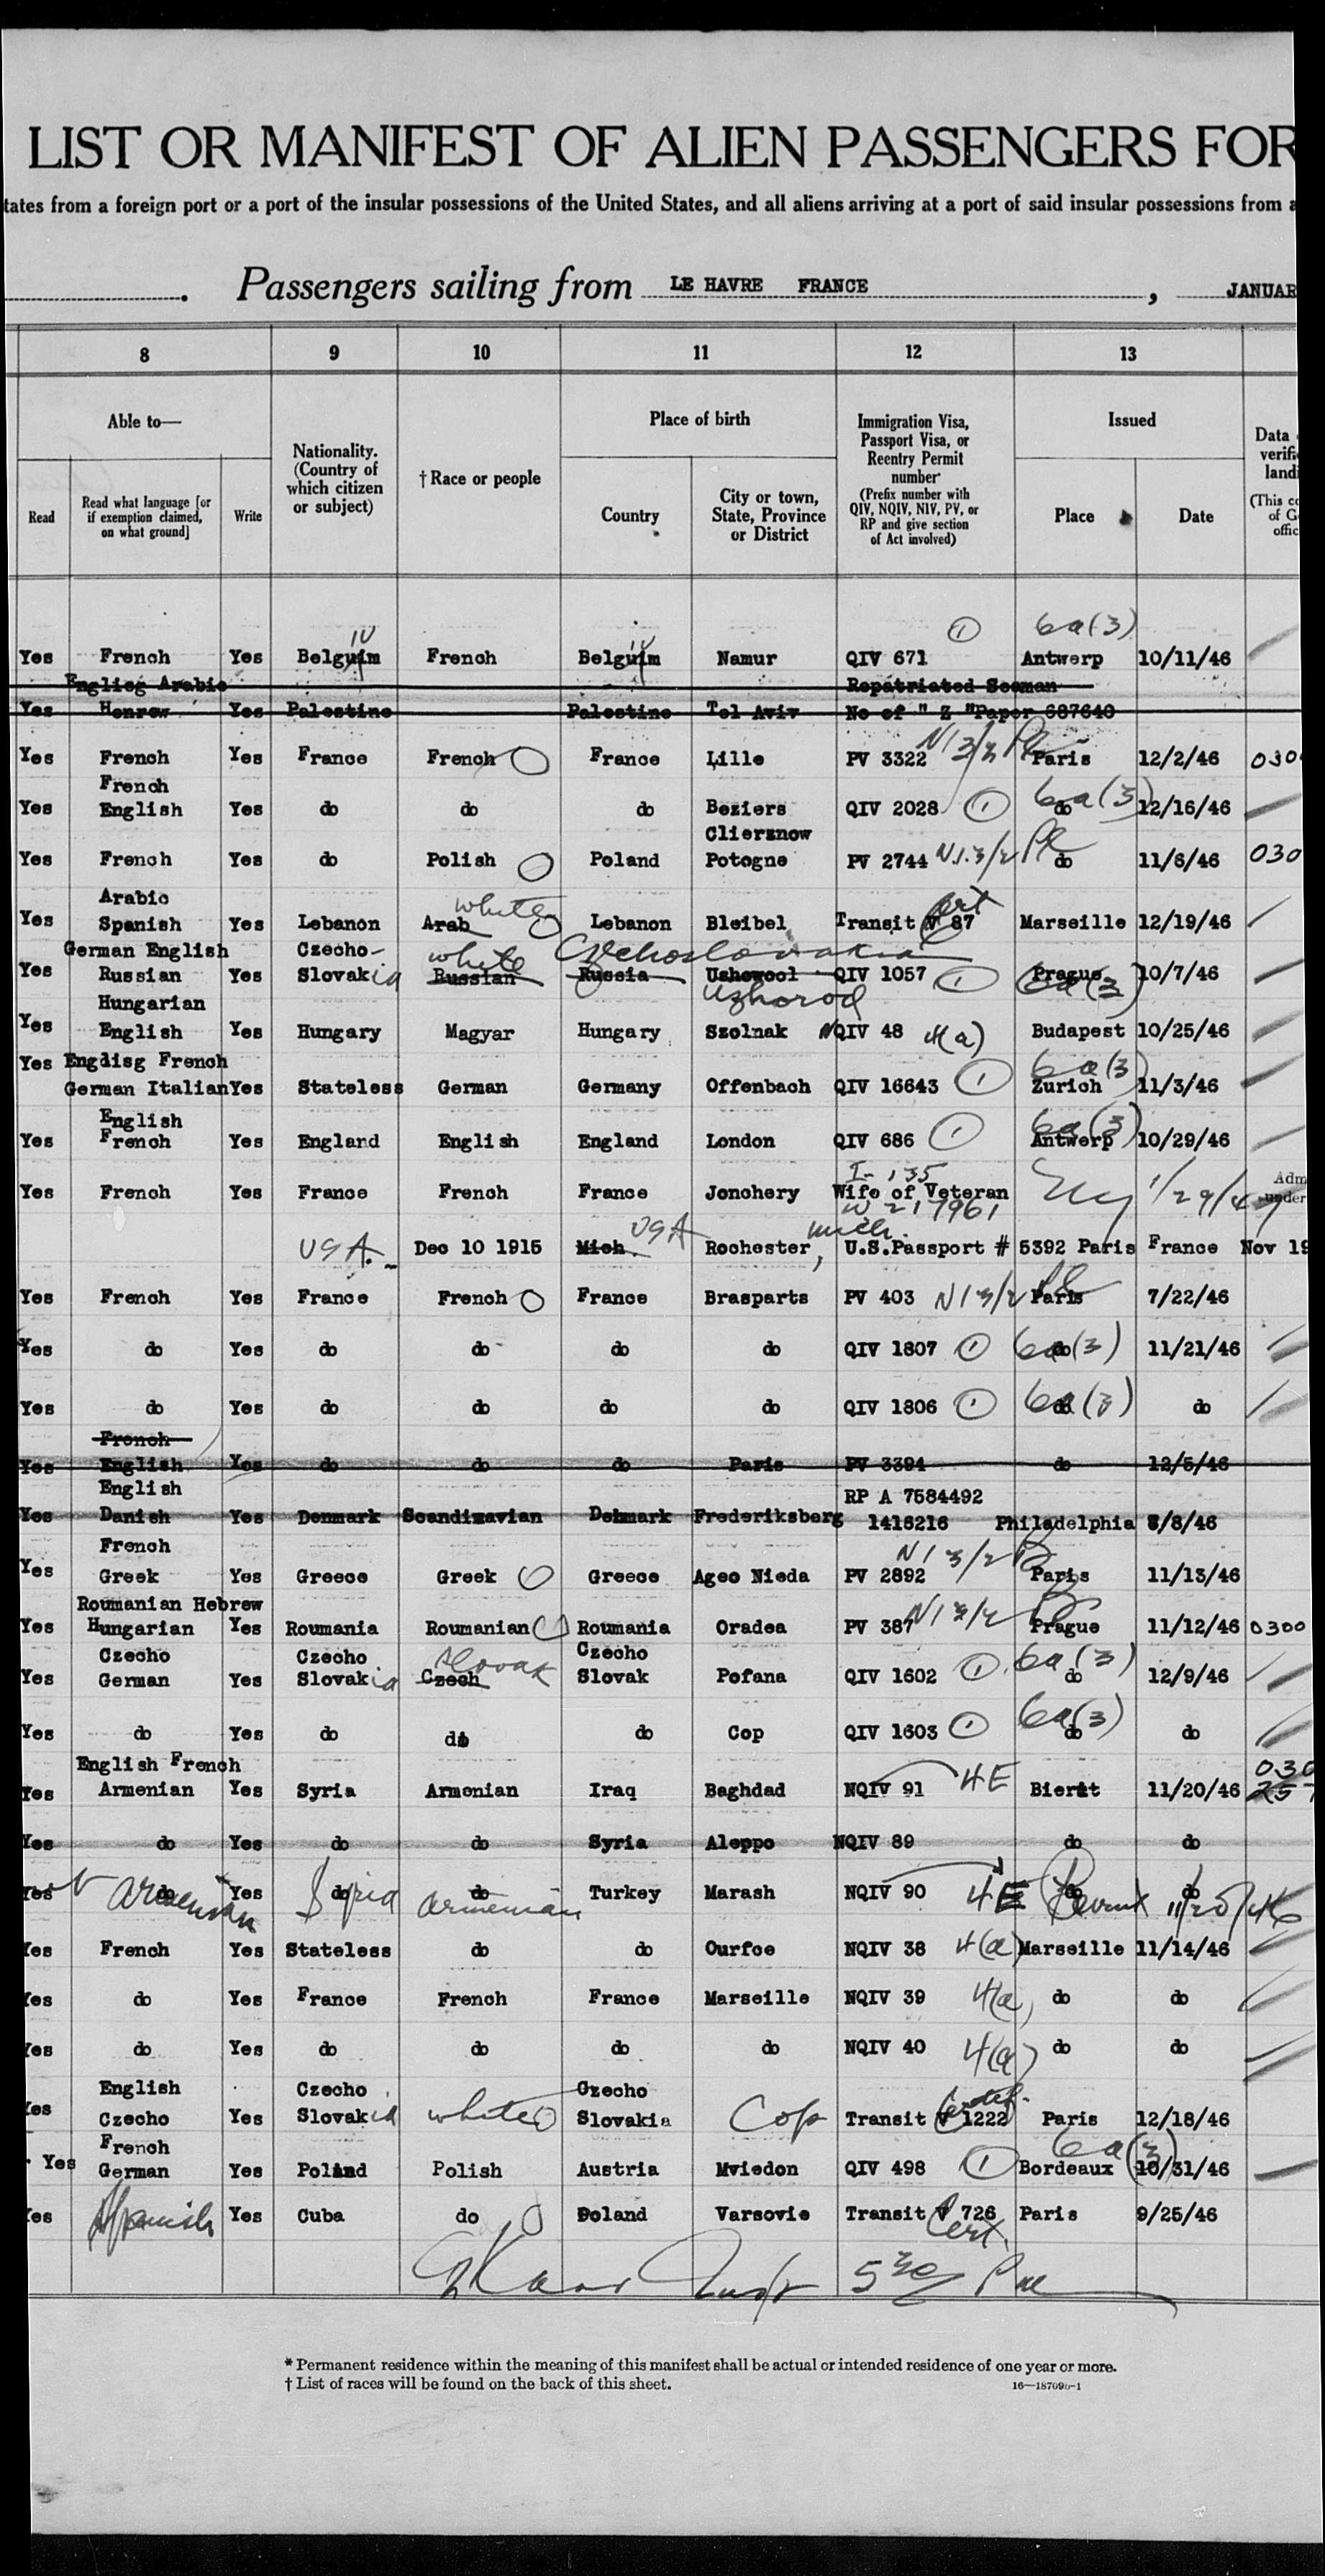 LIST OR MANIFEST OF ALIEN PASSENGERS FOR
tates from a foreign port or a port of the insular possessions of the United States, and all aliens arriving at a port of said insular possessions from a
Passengers sailing from LE HAVRE FRANCE , JANUAR
8 9 10 11 12 13
Able to—
Read
Read what language [or if exemption claimed, on what ground]
Write
Nationality. (Country of which citizen or subject)
† Race or people
Place of birth
Country
City or town, State, Province or District
Immigration Visa, Passport Visa, or Reentry Permit number
(Prefix number with QIV, NQIV, NIV, PV, or RP and give section of Act involved)
Issued
Place
Date
Data
verifi
landi
(This co
of G
offic
1 6a(3)
Yes French Yes Belguim French Belguim Namur QIV 671 Antwerp 10/11/46
Englisg Arabic Repatriated Seeman
Yes Henrew Yes Palestine Palestine Tel Aviv No of " Z "Paper 687640
Yes French Yes France French France Lille PV 3322 N1 3/2 Paris 12/2/46 030
French
Yes English Yes do do do Beziers QIV 2028 1 6a(3) do 12/16/46
Clierznow
Yes French Yes do Polish Poland Potogne PV 2744 N1.3/2 do 11/6/46 030
Arabic white Cert
Yes Spanish Yes Lebanon Arab Lebanon Bleibel Transit V 87 Marseille 12/19/46
German English Czecho- white Czechoslovakia
Yes Russian Yes Slovakia Russian Russia Uzhowool QIV 1057 1 Prague 6a(3) 10/7/46
Uzhorod
Hungarian
Yes English Yes Hungary Magyar Hungary Szolnak NQIV 48 4(a) Budapest 10/25/46
Yes Englisg French 6a(3)
German Italian Yes Stateless German Germany Offenbach QIV 16643 1 Zurich 11/3/46
English 6a(3)
Yes French Yes England English England London QIV 686 1 Antwerp 10/29/46
I-135
Yes French Yes France French France Jonchery Wife of Veteran 1/29/47 Adm
under
W 217961
USA Mich.
USA. Dec 10 1915 Mich. Rochester, U.S.Passport # 5392 Paris France Nov 19
Yes French Yes France French France Brasparts PV 403 N1 3/2 Paris 7/22/46
Yes do Yes do do do do QIV 1807 1 6a(3) do 11/21/46
Yes do Yes do do do do QIV 1806 1 6a(3) do do
French
Yes English Yes do do do Paris PV 3394 do 12/5/46
English RP A 7584492
Yes Danish Yes Denmark Scandinavian Denmark Frederiksberg 1416216 Philadelphia 8/8/46
French N1 3/2
Yes Greek Yes Greece Greek Greece Ageo Nieda PV 2892 Paris 11/13/46
Roumanian Hebrew
Yes Hungarian Yes Roumania Roumanian Roumania Oradea PV 387 N1 3/2 Prague 11/12/46 0300
Czecho Czecho Slovak Czecho
Yes German Yes Slovakia Czech Slovak Pofana QIV 1602 1 6a(3) do 12/9/46
Yes do Yes do do do Cop QIV 1603 1 6a(3) do do
English French 030
Yes Armenian Yes Syria Armenian Iraq Baghdad NQIV 91 4E Bierut 11/20/46
Yes do Yes do do Syria Aleppo NQIV 89 do do
Yes do Armenian Yes do Syria do Armenian Turkey Marash NQIV 90 4E do Beirut do 11/20/46
Yes French Yes Stateless do do Ourfce NQIV 38 4(a) Marseille 11/14/46
Yes do Yes France French France Marseille NQIV 39 4(a) do do
Yes do Yes do do do do NQIV 40 4(a) do do
English Czecho Czecho
Yes Czecho Yes Slovakia white Slovakia Cop Transit V 1222 Paris 12/18/46
French 6a(3)
Yes German Yes Poland Polish Austria Mviedon QIV 498 1 Bordeaux 10/31/46
Yes Spanish Yes Cuba do Poland Varsovie Transit V 726 Paris 9/25/46
Cert.
530
* Permanent residence within the meaning of this manifest shall be actual or intended residence of one year or more.
† List of races will be found on the back of this sheet. 16—18709b-1